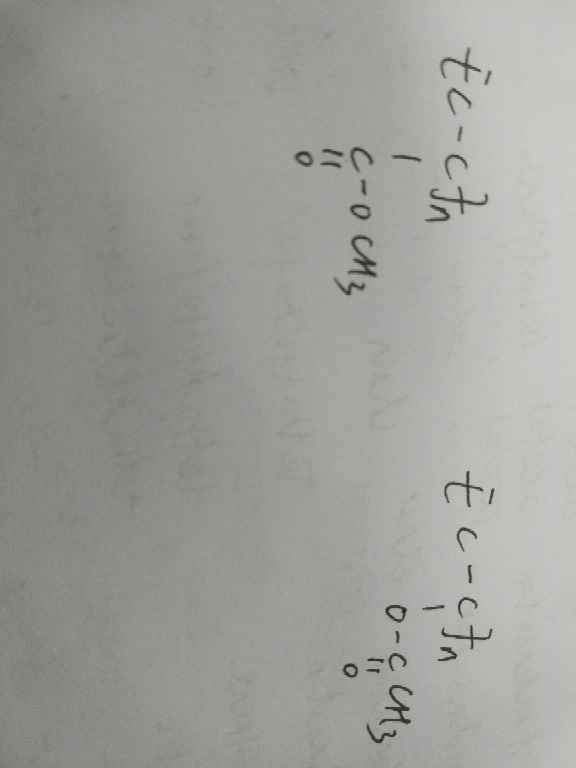 -[C-C]-n
|
C-OCH3
||
O
-[C-C]-n
|
O-C CH3
||
O